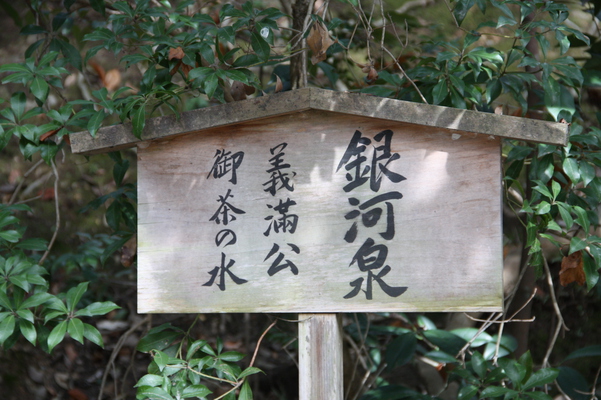 銀河泉
義満公
御茶の水